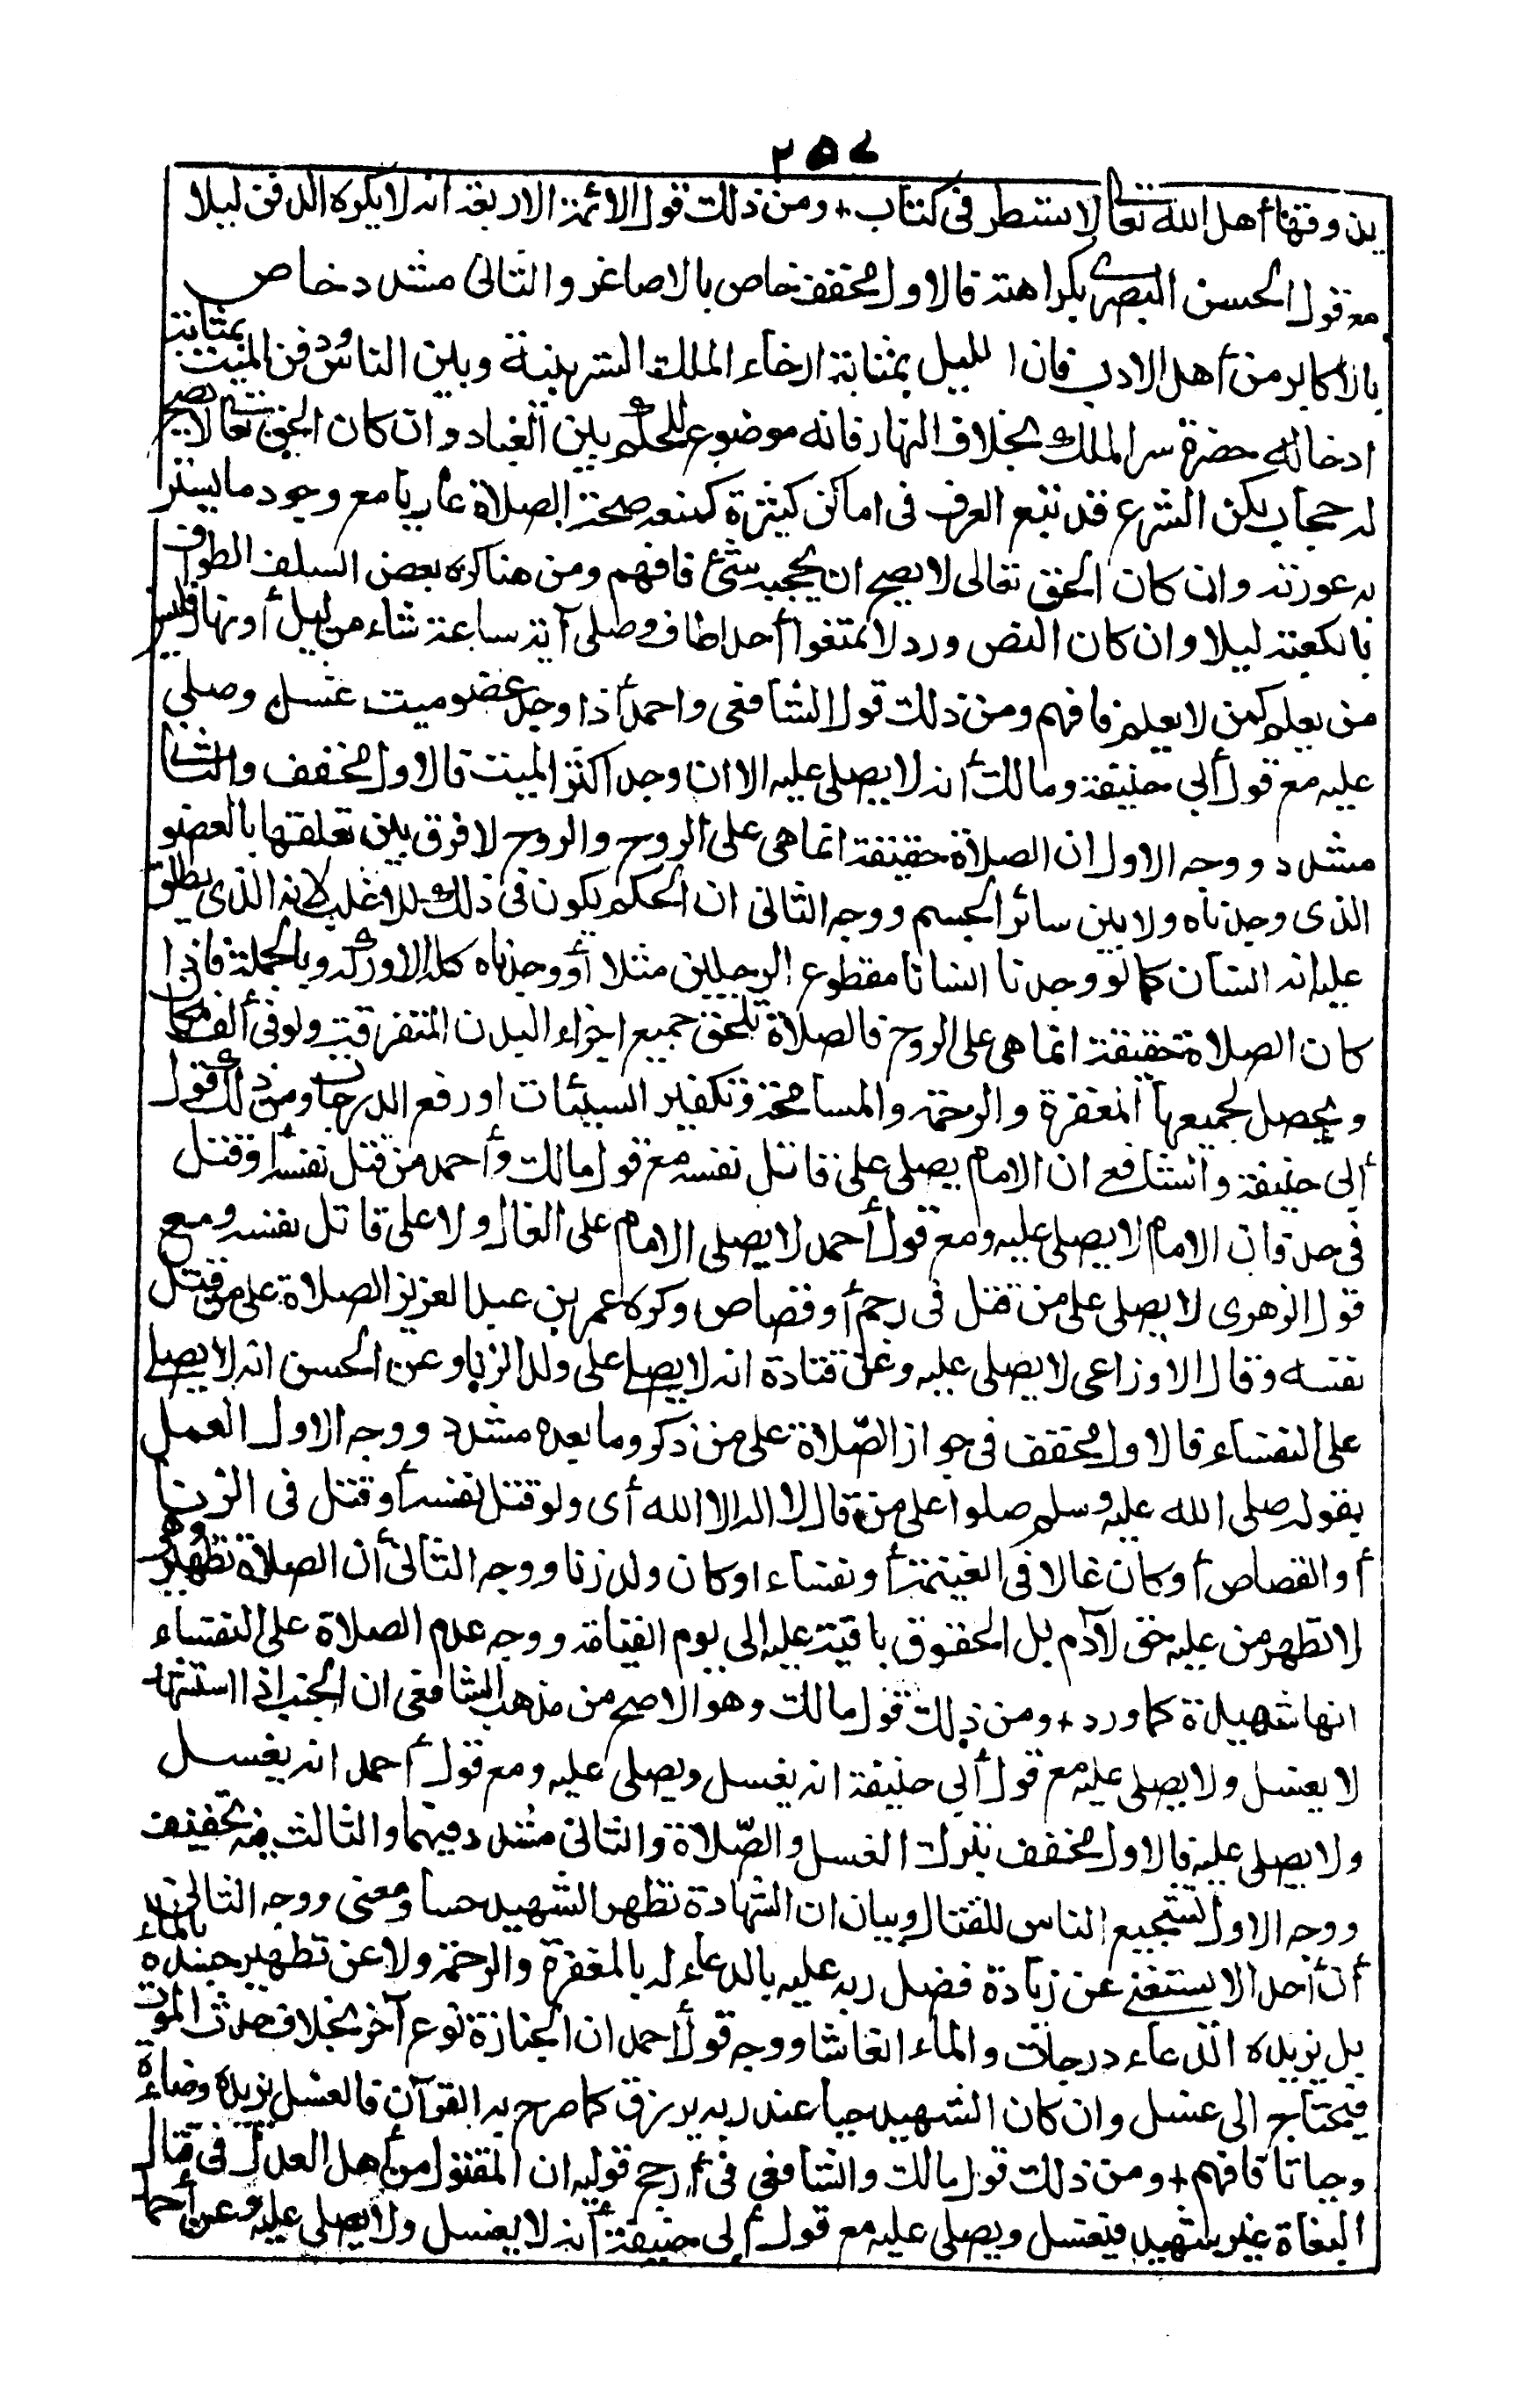 ٢٥٧
يذوقها أهل الله تعالى لا تسطر في كتاب + ومن ذلك قول الائمة الاربعة انه لا يكره الدفن ليلا
مع قول الحسن البصري بكراهته فالاول مخفف خاص بالاصاغر والثاني مشدد خاص
بالأكابر من أهل الادب فان الليل بمثابة ارخاء الملك الستر بينه وبين الناس ودفن الميت بمثابة
ادخاله حضرة سر الملك بخلاف النهار فانه موضوع للحكم بين العباد وان كان الحق تعالى لا يصح
له حجاب لكن الشرع قد تبع العرف في اماكن كثيرة كمنعه صحة الصلاة عاريا مع وجود ما يستر
به عورته وان كان الحق تعالى لا يصح ان يحجبه شئ فافهم ومن هنا كره بعض السلف الطواف
بالكعبة ليلا وان كان النص ورد لا تمنعوا أحدا طاف وصلى آية ساعة شاء من ليل أو نهار فليس
من يعلم كمن لا يعلم فافهم ومن ذلك قول الشافعي واحمد أذا وجد عضو ميت غسل وصلي
عليه مع قول أبي حنيفة ومالك أنه لا يصلى عليه الا ان وجد اكثر الميت فالاول مخفف والثاني
مشدد ووجه الاول ان الصلاة حقيقة انما هي على الروح والروح لا فرق بين تعلقها بالعضو
الذي وجدناه ولا بين سائر الجسم ووجه الثاني ان الحكم يكون في ذلك للاغلب لانه الذي يطلق
عليه انه انسان كما لو وجدنا انسانا مقطوع الرجلين مثلا أو وجدناه كله الا وركه وبالجملة فاذا
كان الصلاة حقيقة انما هي على الروح فالصلاة تلحق جميع اجزاء البدن المتفرقة ولو في ألف مكان
ويحصل لجميعها المغفرة والرحمة والمسامحة وتكفير السيئات او رفع الدرجات ومن ذلك قول
أبي حنيفة والشافعي ان الامام يصلي على قاتل نفسه مع قول مالك وأحمد من قتل نفسه أو قتل
في حد فان الامام لا يصلي عليه ومع قول أحمد لا يصلي الامام على الغال ولا على قاتل نفسه ومع
قول الزهري لا يصلي على من قتل في رجم أو قصاص وكره عمر بن عبد العزيز الصلاة على من قتل
نفسه وقال الاوزاعي لا يصلى عليه وعن قتادة انه لا يصلي على ولد الزنا وعن الحسن انه لا يصلي
على النفساء فالاول مخفف في جواز الصّلاة على من ذكر وما بعده مشدد ووجه الاول العمل
بقوله صلى الله عليه وسلم صلوا على من قال لا اله الا الله أى ولو قتل نفسه أو قتل في الزنا
أو القصاص أو كان غالا في الغنيمة أو نفساء او كان ولد زنا ووجه الثاني أن الصلاة تطهير وهو
لا تطهر من عليه حق لآدم بل الحقوق باقية عليه إلى يوم القيامة ووجه عدم الصلاة على النفساء
انها شهيدة كما ورد + ومن ذلك قول مالك وهو الاصح من مذهب الشافعي ان الجنب اذا استشهد
لا يغسل ولا يصلى عليه مع قول أبي حنيفة انه يغسل ويصلى عليه ومع قول أحمد انه يغسل
ولا يصلى عليه فالاول مخفف بترك الغسل والصّلاة والثاني مشدد فيهما والثالث فيه تخفيف
ووجه الاول تشجيع الناس للقتال وبيان ان الشهادة تطهر الشهيد حسا ومعنى ووجه الثاني
أن أحدا لا يستغني عن زيادة فضل ربه عليه بالدعاء له بالمغفرة والرحمة ولا عن تطهير جسده بالماء
بل يزيده الدعاء درجات والماء انعاشا ووجه قول أحمد ان الجنازة نوع آخر بخلاف حدث الموت
فيحتاج الى غسل وان كان الشهيد حيا عند ربه يرزق كما صرح به القرآن فالغسل يزيده وضاءة
وحياتا فافهم + ومن ذلك قول مالك والشافعي في أرجح قوليه ان المقتول من أهل العدل في قتال
البغاة غير شهيد فيغسل ويصلى عليه مع قول أبي حنيفة أنه لا يغسل ولا يصلى عليه وعن أحمد